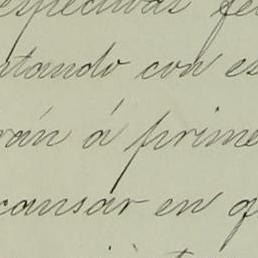 espectivas fe
ntando con es
rán á prime
cansar en q